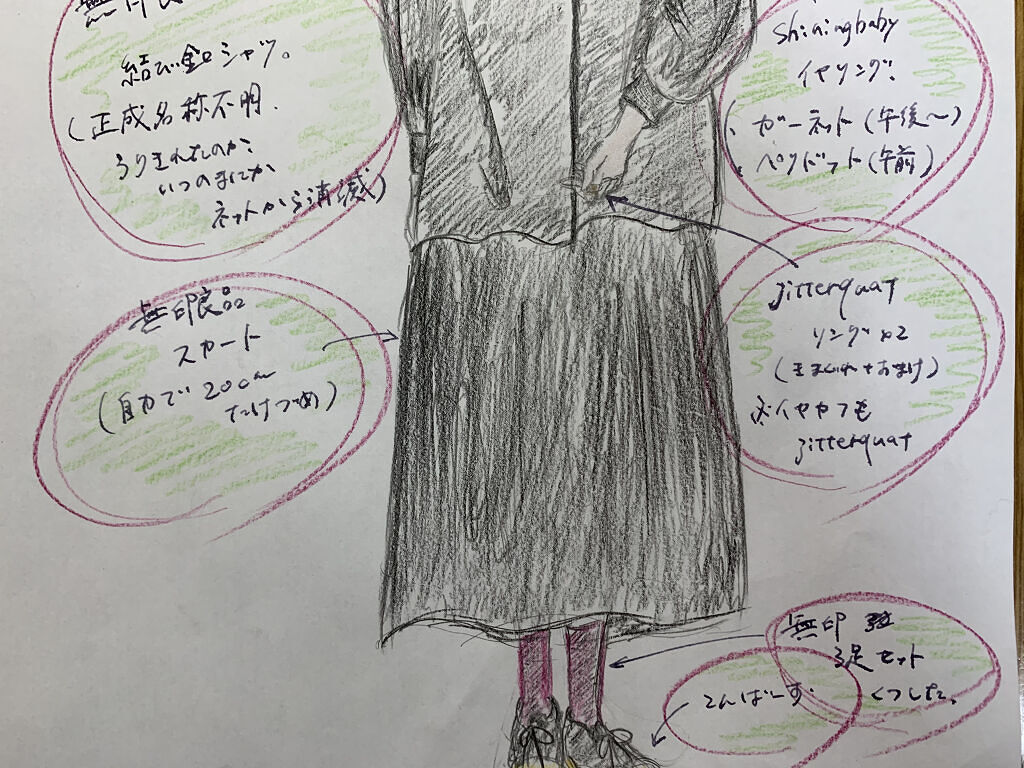 無印良
結び紐シャツ。
(正成名称不明.
うりきれたのか、
いつのまにか
ネットから消滅)
shiningbaby
イヤリング、
、ガーネット(午後〜)
、ペリドット(午前)
無印良品
スカート
(自力で20cm
たけつめ)
jitterquat
リング×2
おまけ)
イヤカフも
jitterquat
無印
3足セット
くつした。
こんばーす